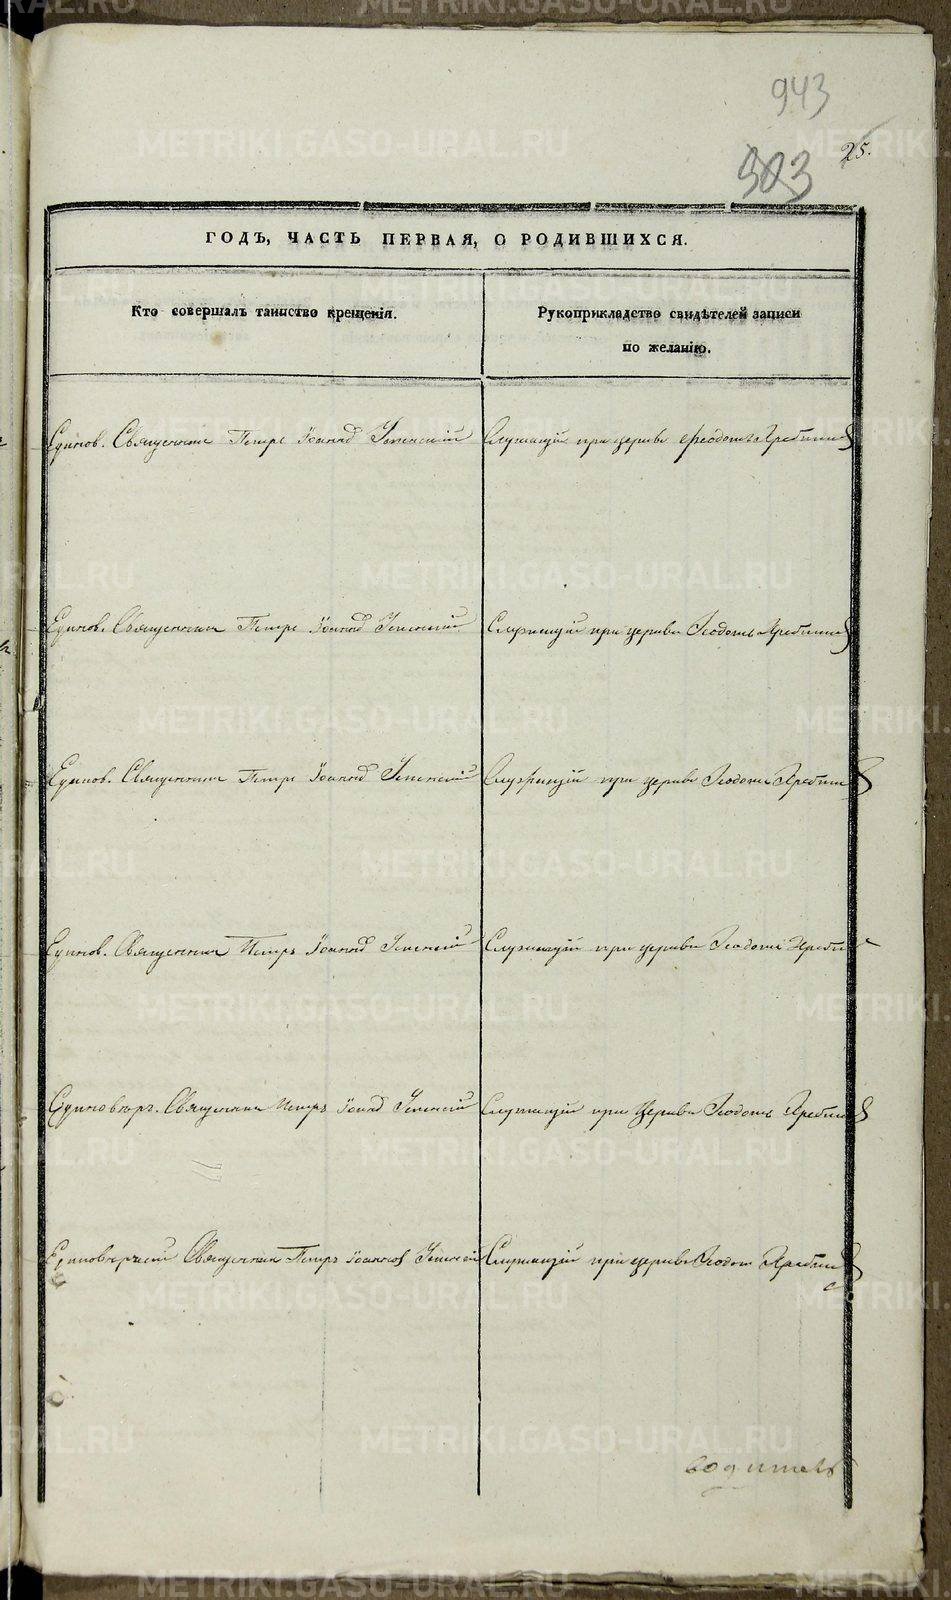 943
25.
903
ГОДЪ, ЧАСТЬ ПЕРВАЯ, О РОДИВШИХСЯ.
Кто совершалъ таинство крещенія.
Рукоприкладство свидѣтелей записи
по желанію.
Единов. Священникъ Петръ Іоаннов Успенскій
Служащій при церкви Феодотъ
Единов. Священникъ Петръ Іоаннов Успенскій
Служащій при церкви Феодотъ
Единов. Священникъ Петръ Іоаннов Успенскій
Служащій при церкви Феодотъ
Единов. Священникъ Петръ Іоаннов Успенскій
Служащій при церкви Феодотъ
Единовѣр. Священникъ Петръ Іоанов Успенскій
Служащій при Церкви Феодотъ
Единовѣрческій Священникъ Петръ Іоаннов Успенскій
Служащій при церкви Феодот
METRIKI.GASO-URAL.RU